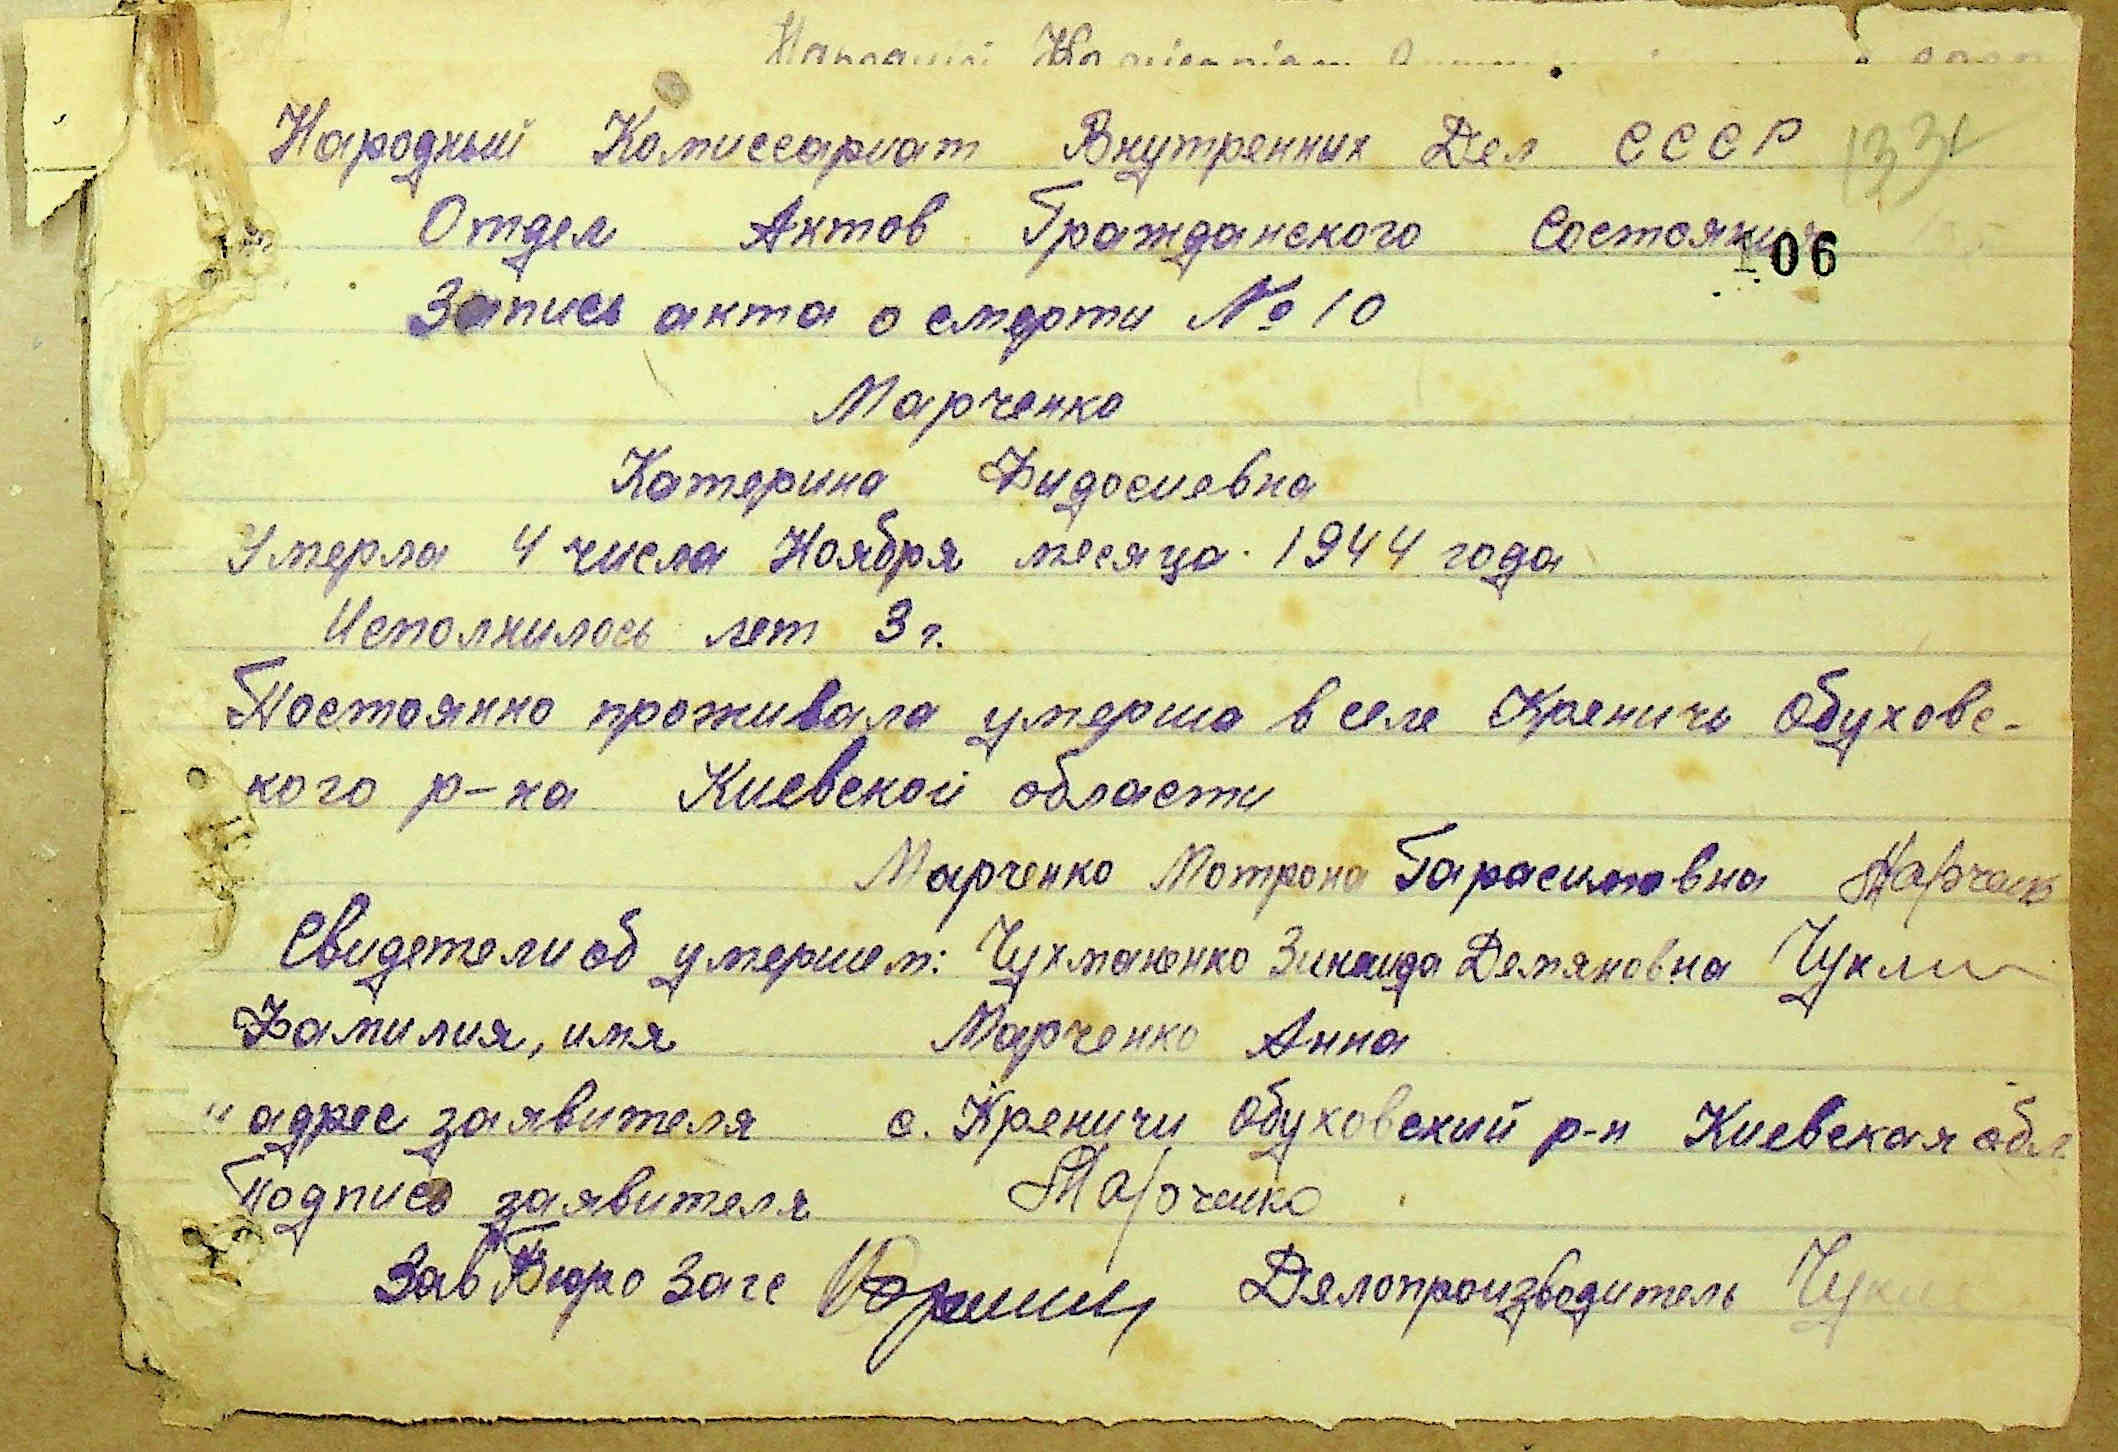 Народный Комиссариат Внутренних Дел СССР
Отдел Актов Гражданского Состояния
106
Запись акта о смерти № 10
Марченко
Катерина Фидосиевна
Умерла 4 числа Ноября месяца 1944 года
Исполнилось лет 3 г.
Постоянно проживала умерша в селе Креничи Обуховс-
кого р-на Киевской области
Марченко Мотрона Гарасимовна Марченко
Свидетели об умершем: Чухманенко Зинаида Демяновна
Фамилия, имя Марченко Анна
и адрес заявителя с. Креничи Обуховский р-н Киевская обл
Подпись заявителя Марченко
Зав Бюро Загс Делопроизводитель